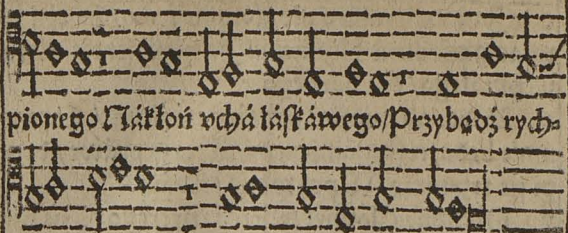 pionego Nákłoń vchá łáſkáwego/Przybądź rych⸗